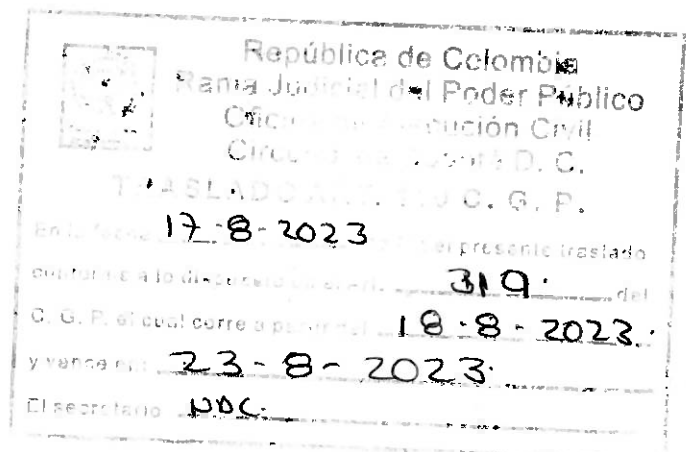 República de Colombia
Rama Judicial del Poder Público
Oficina de Ejecución Civil
Circuito de Bogotá D. C.
TRASLADO ART. 110 C. G. P.
En la fecha 17-8-2023 el presente traslado
conforme a lo dispuesto en el Art. 319. del
C. G. P. el cual corre a partir del 18-8-2023.
y vence en: 23-8-2023.
El secretario NDC.